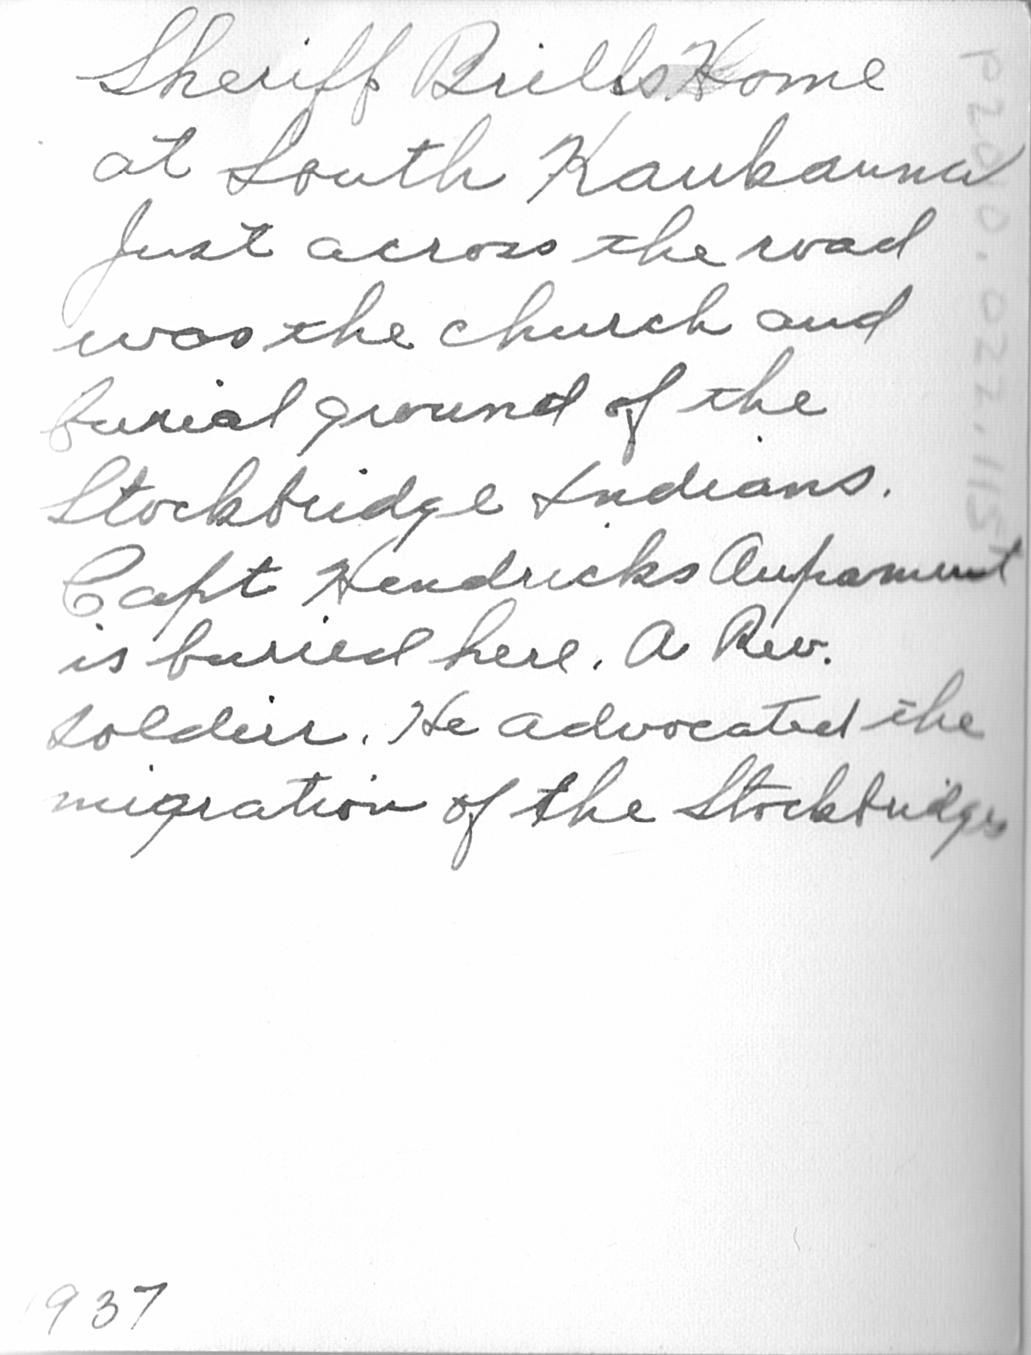 Sheriff Brills Home
at South Kaukauna
Just across the road
was the church and
burial ground of the
Stockbridge Indians.
Capt Hendricks Aupamut
is buried here. A Rev.
soldier. He advocated the
migration of the Stockbridges
1937
P2010.022.115